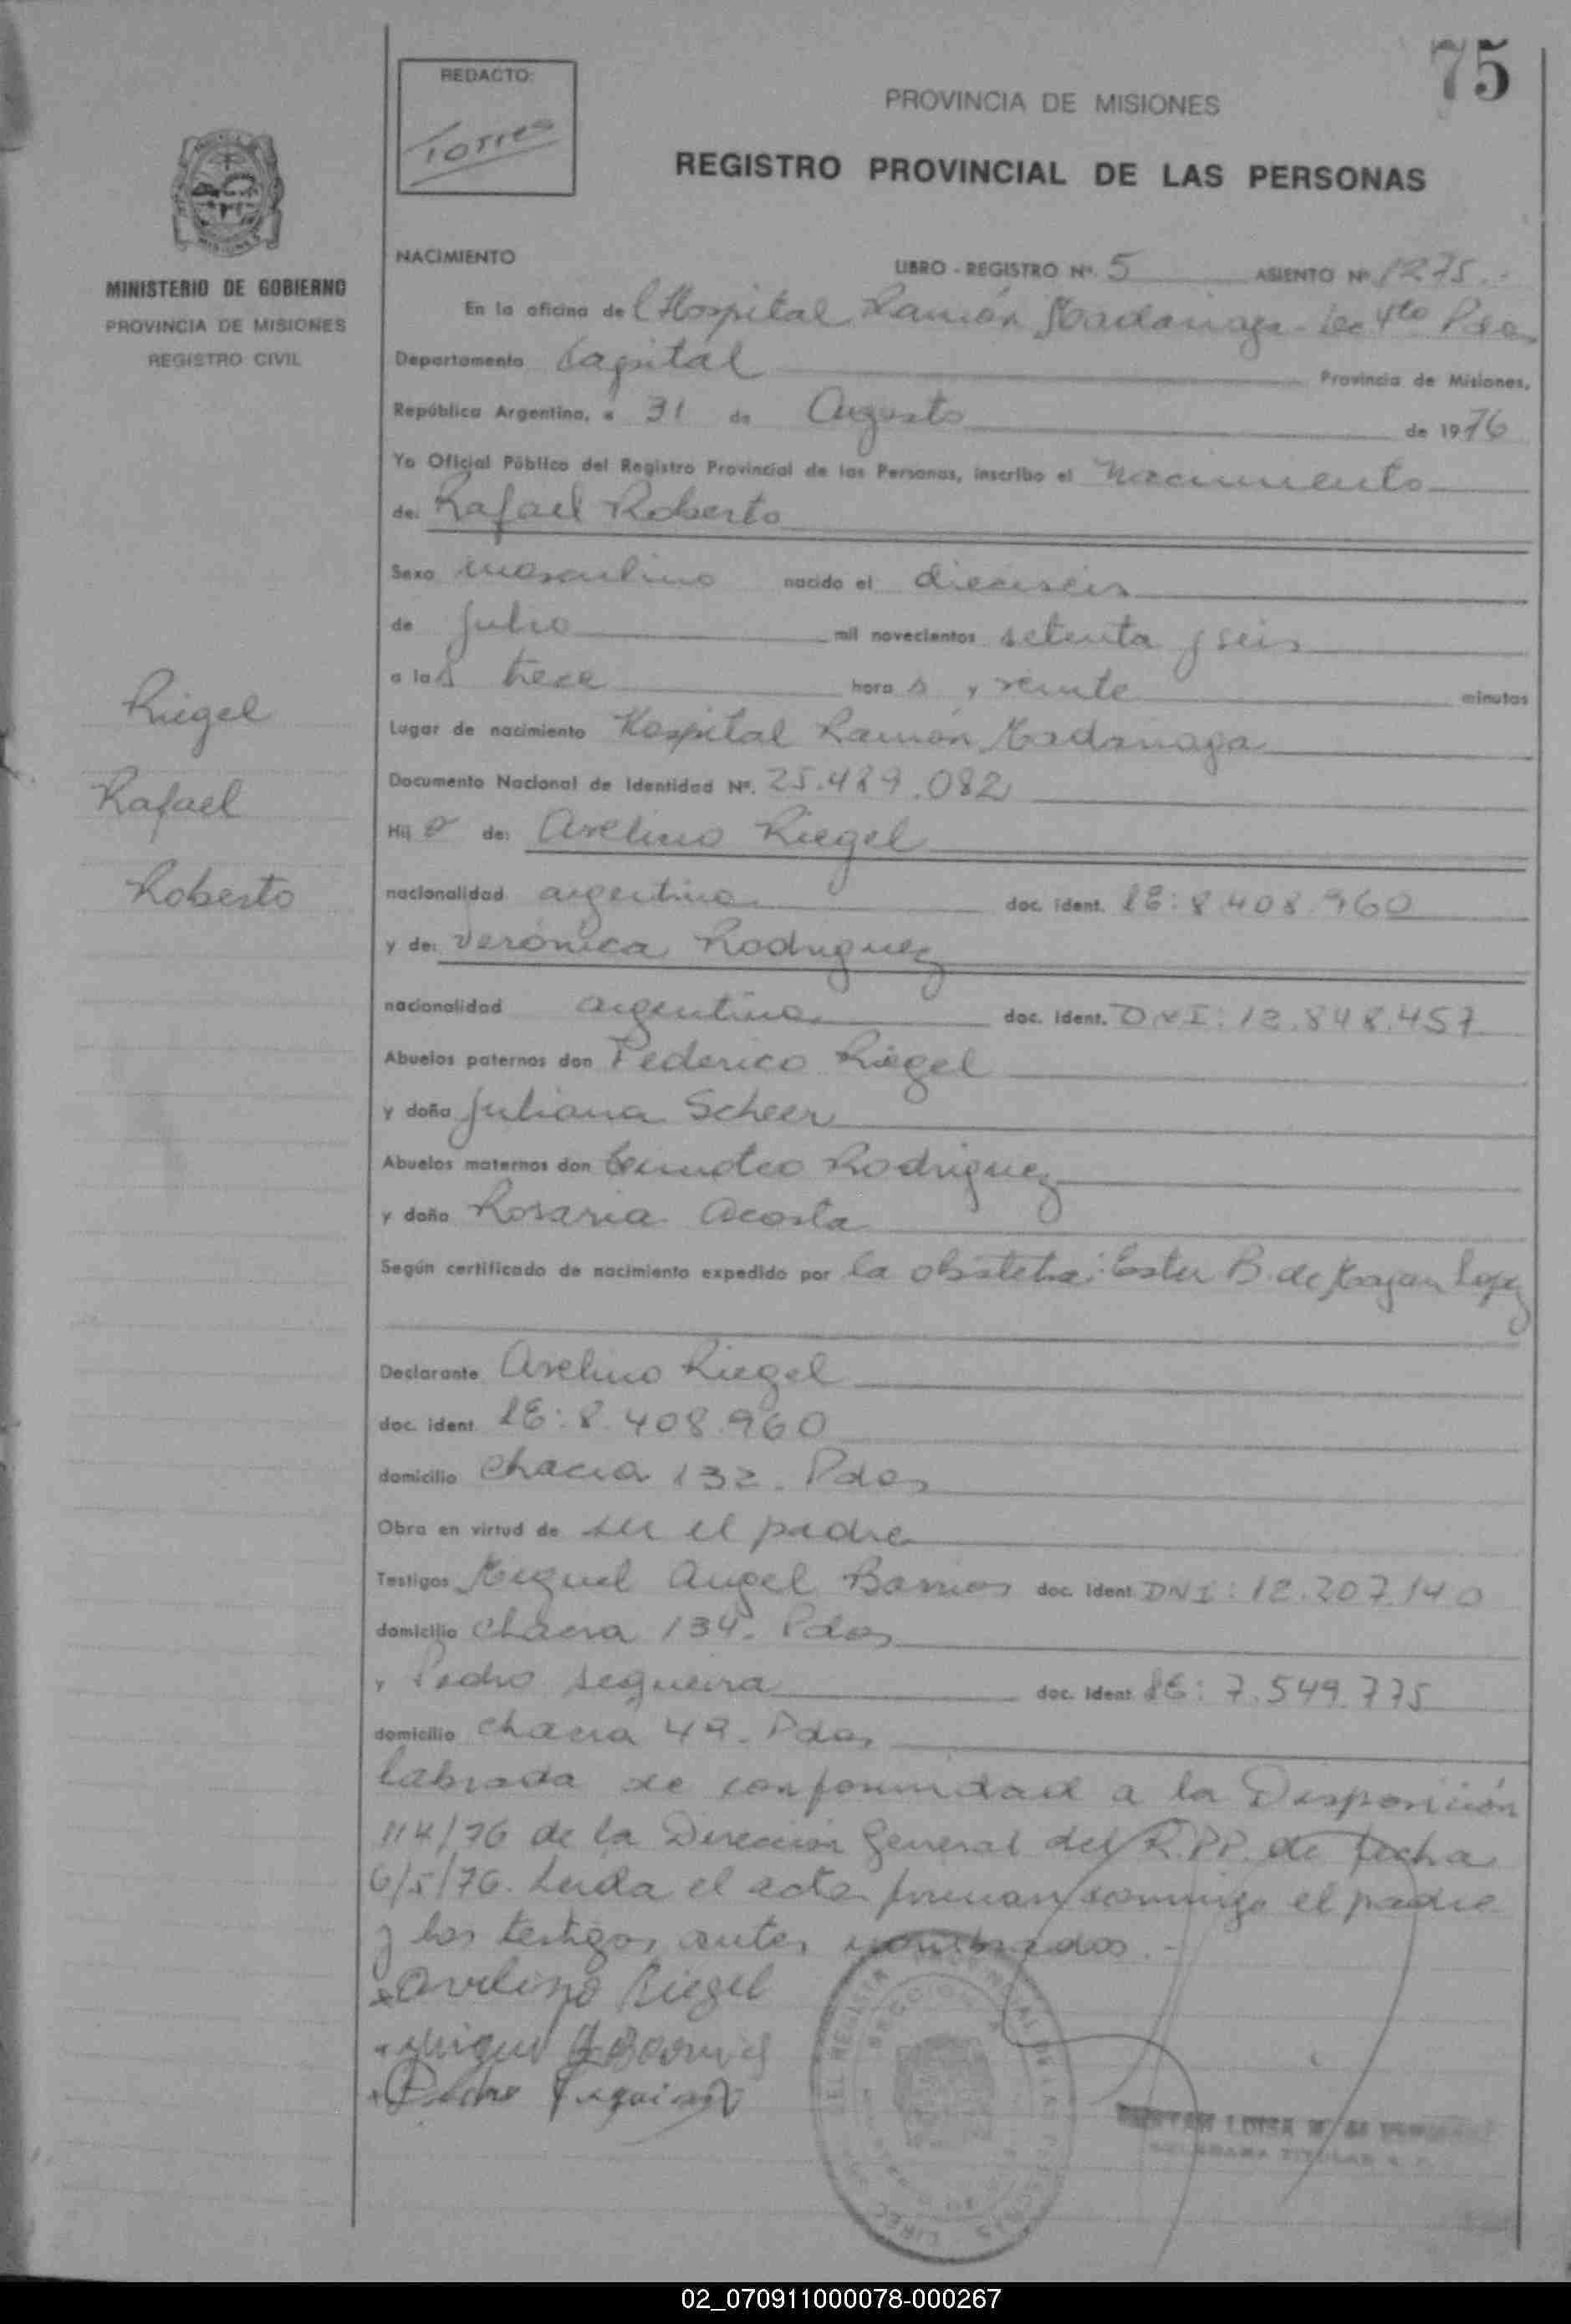 75
REDACTO:
Torres
PROVINCIA DE MISIONES
REGISTRO PROVINCIAL DE LAS PERSONAS
MINISTERIO DE GOBIERNO
PROVINCIA DE MISIONES
REGISTRO CIVIL
NACIMIENTO
LIBRO - REGISTRO Nº. 5 ASIENTO Nº 1275.-
En la oficina del Hospital Ramón Madariaga 4to Pdas
Departamento Capital Provincia de Misiones,
República Argentina, a 31 de Augusto de 1976
Yo Oficial Público del Registro Provincial de las Personas, inscribo el Nacimiento
de: Rafael Roberto
Sexo masculino nacido el dieciséis
de julio mil novecientos setenta y seis
a las trece horas y veinte minutos
Lugar de nacimiento Hospital Ramón Madariaga
Documento Nacional de Identidad Nº. 25.489.082
Hijo de: Avelino Riegel
nacionalidad argentina doc. ident. LE: 8.408.960
y de: Verónica Rodriguez
nacionalidad argentina doc. ident. DNI: 12.848.457
Abuelos paternos don Federico Riegel
y doña Juliana Scheer
Abuelos maternos don Rodriguez
y doña Rosaria Acosta
Según certificado de nacimiento expedido por la obstetra: Ester B. de Lopez
Declarante Avelino Riegel
doc. ident. LE: 8.408.960
domicilio chacra 132. Pdas
Obra en virtud de ser el padre
Testigos Miguel Angel Barrios doc. ident. DNI: 12.207.140
domicilio chacra 134. Pdas
y Pedro Sequeira doc. ident. LE: 7.549.775
domicilio chacra 49. Pdas
labrada de conformidad a la Disposición
114/76 de la Dirección General del R.P.P. de fecha
6/5/76. Leida el acta firman conmigo el padre
y los testigos antes nombrados.-
Avelino Riegel
Miguel A Barrios
Pedro Sequeira
Riegel
Rafael
Roberto
02_070911000078-000267